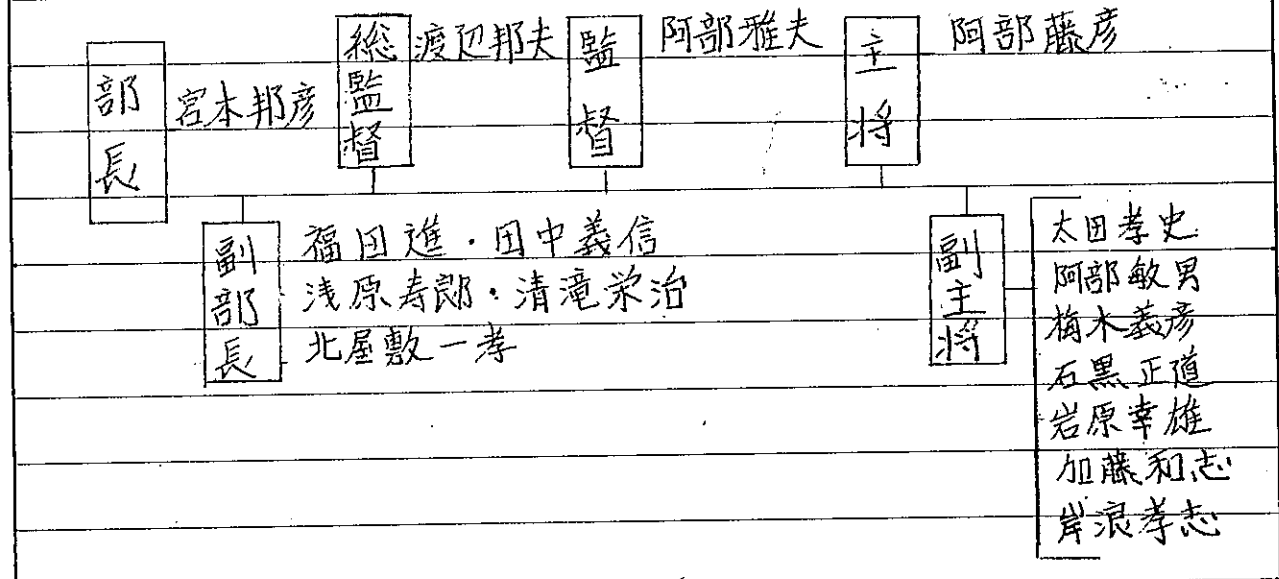 部長
宮本邦彦
総監督
渡辺邦夫
監督
阿部雅夫
主将
阿部藤彦
副部長
福田進・田中義信
浅原寿郎・清滝栄治
北屋敷一孝
副主将
太田孝史
阿部敏男
梅木義彦
石黒正道
岩原幸雄
加藤和志
岸浪孝志